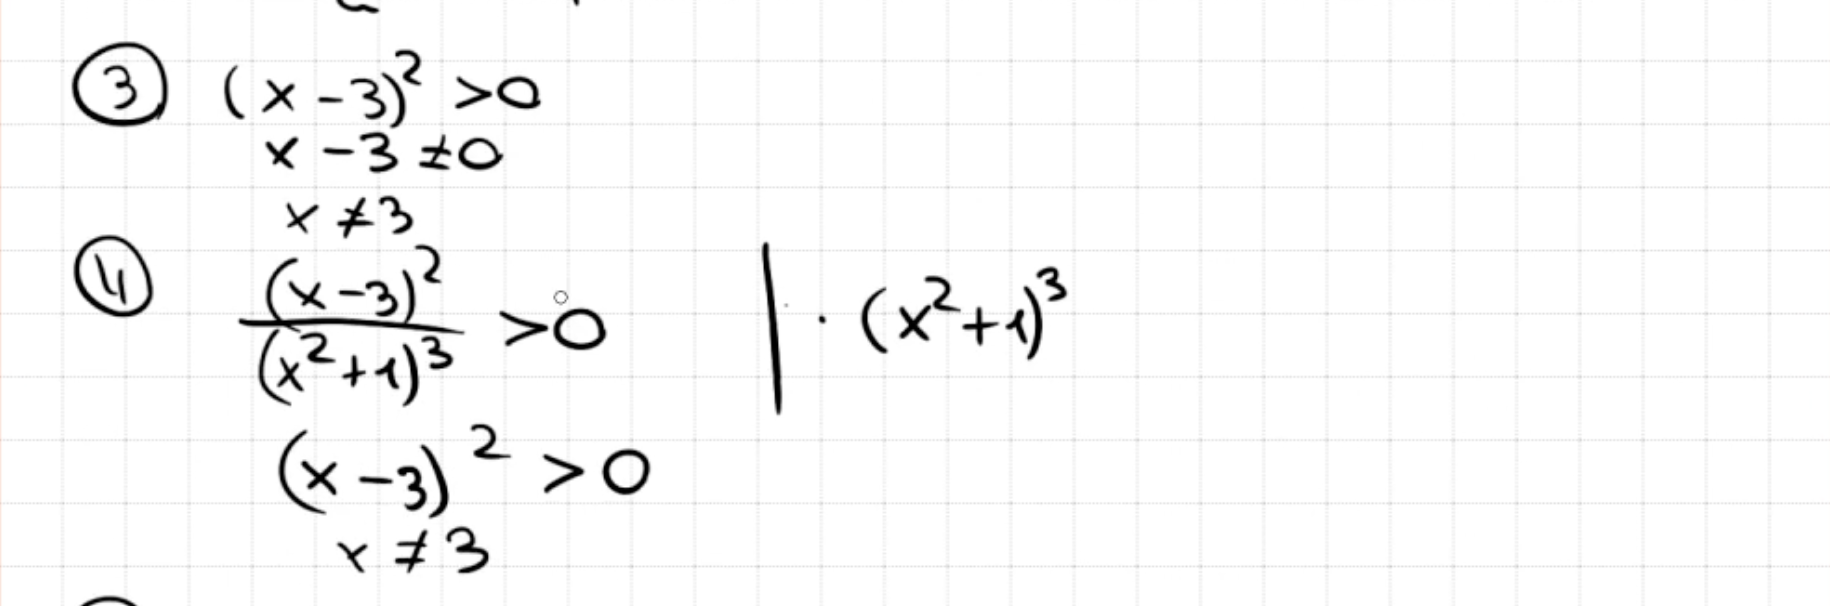 ③ (x-3)² >0
x-3≠0
x≠3
④ (x-3)²/(x²+1)³ >0 | · (x²+1)³
(x-3)² >0
x≠3